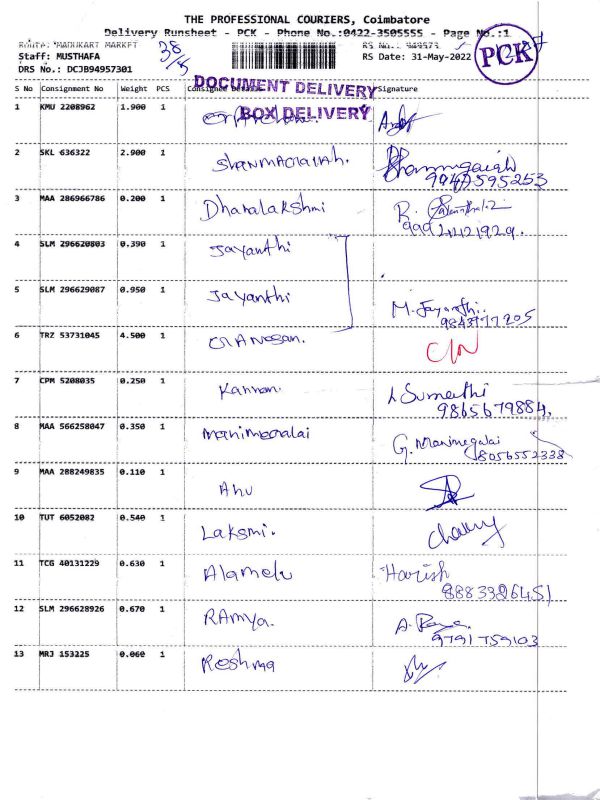 THE PROFESSIONAL COURIERS, Coimbatore
Delivery Runsheet - PCK - Phone No.:0422-3505555 - Page No.:1
Route: MADUKART MARKET
RS No.: 949573
Staff: MUSTHAFA
RS Date: 31-May-2022
DRS No.: DCJB94957301
38/5
PCK
DOCUMENT DELIVERY
BOX DELIVERY
S No Consignment No Weight PCS Consignee Details Signature
1 KMU 2208962 1.900 1
2 SKL 636322 2.900 1 Shanmagaiah. Shanmugaiah
9940595253
3 MAA 286966786 0.200 1 Dhanalakshmi R.
9994421929.
4 SLM 296620803 0.390 1 Jayanthi
5 SLM 296629087 0.950 1 Jayanthi M. Jayanthi.
9843177205
6 TRZ 53731045 4.500 1 Ganesan.
7 CPM 5208035 0.250 1 Kannan. Sumathi
9865679884.
8 MAA 566258047 0.350 1 Manimegalai G. Manimegalai
8056552338
9 MAA 288249835 0.110 1 Anu
10 TUT 6052082 0.540 1 Laksmi.
11 TCG 40131229 0.630 1 Alamelu Harish
8883326451
12 SLM 296628926 0.670 1 RAmya. A. Ramya
9791759103
13 MRJ 153225 0.060 1 Reshma